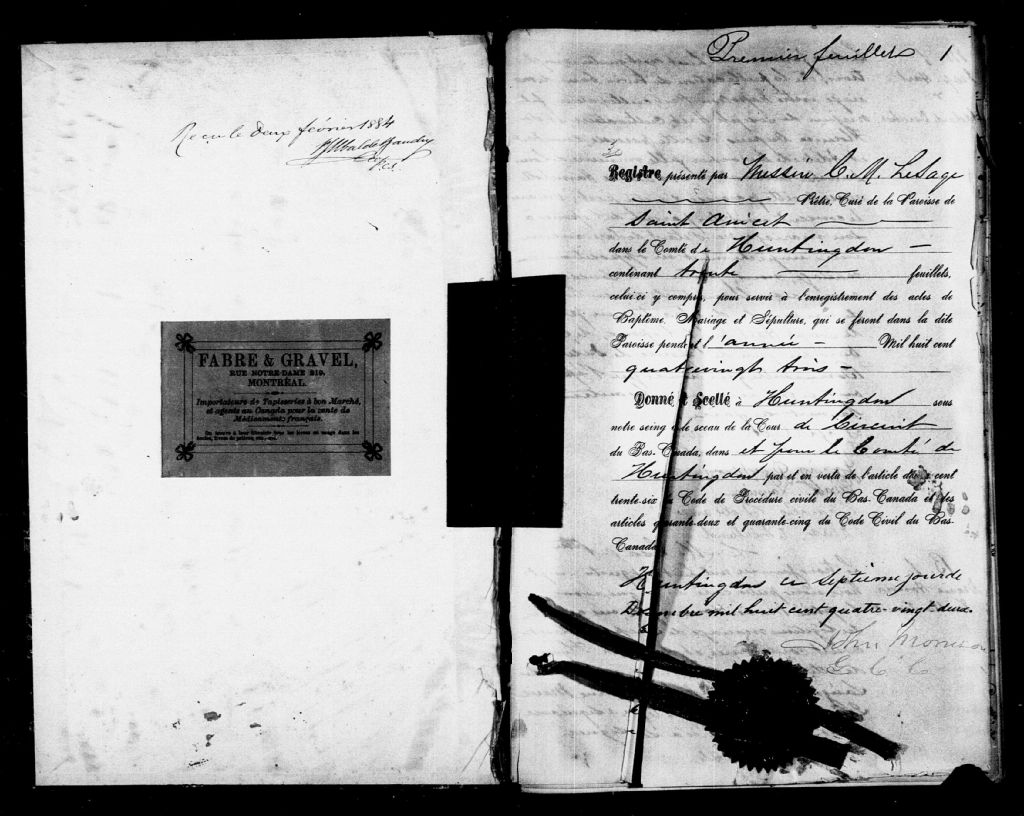 Reçu le deux février 1884
FABRE & GRAVEL,
RUE NOTRE-DAME 219,
MONTRÉAL.
Importateurs de Tapisseries à bon Marché,
et agents au Canada pour la vente de
Médicaments français.
On trouve à leur librairie tous les livres en usage dans les
écoles, livres de prières, etc., etc.
Premier feuillet 1
Registre, présenté par Messire C. M. LeSage
Prêtre, Curé de la Paroisse de
Saint Anicet
dans le Comté de Huntingdon —
contenant trente — feuillets,
celui-ci y compris, pour servir à l'enregistrement des actes de
Baptême, Mariage et Sépulture, qui se feront dans la dite
Paroisse pendant l'année — Mil huit cent
quatrevingt trois —
Donné et Scellé à Huntingdon sous
notre seing et le sceau de la Cour de Circuit
du Bas-Canada, dans et pour le Comté de
Huntingdon, par et en vertu de l'article douze cent
trente-six du Code de Procédure civile du Bas-Canada et des
articles quarante-deux et quarante-cinq du Code Civil du Bas-
Canada
Huntingdon ce septième jour de
Décembre mil huit cent quatre-vingt deux.
John Morrison
C. C. C.